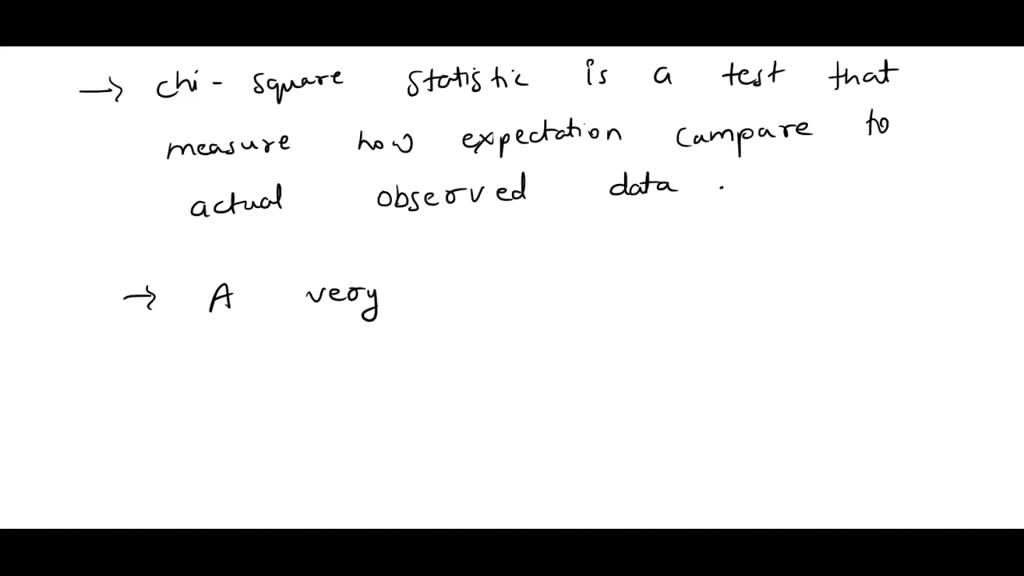 → chi - square statistic is a test that
measure how expectation campare to
actual observed data .
→ A very